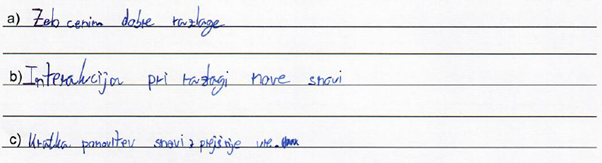 a) Zelo cenim dobre razlage
b) Interakcija pri razlagi nove snovi
c) Kratka ponovitev snovi z prejšnje ure.